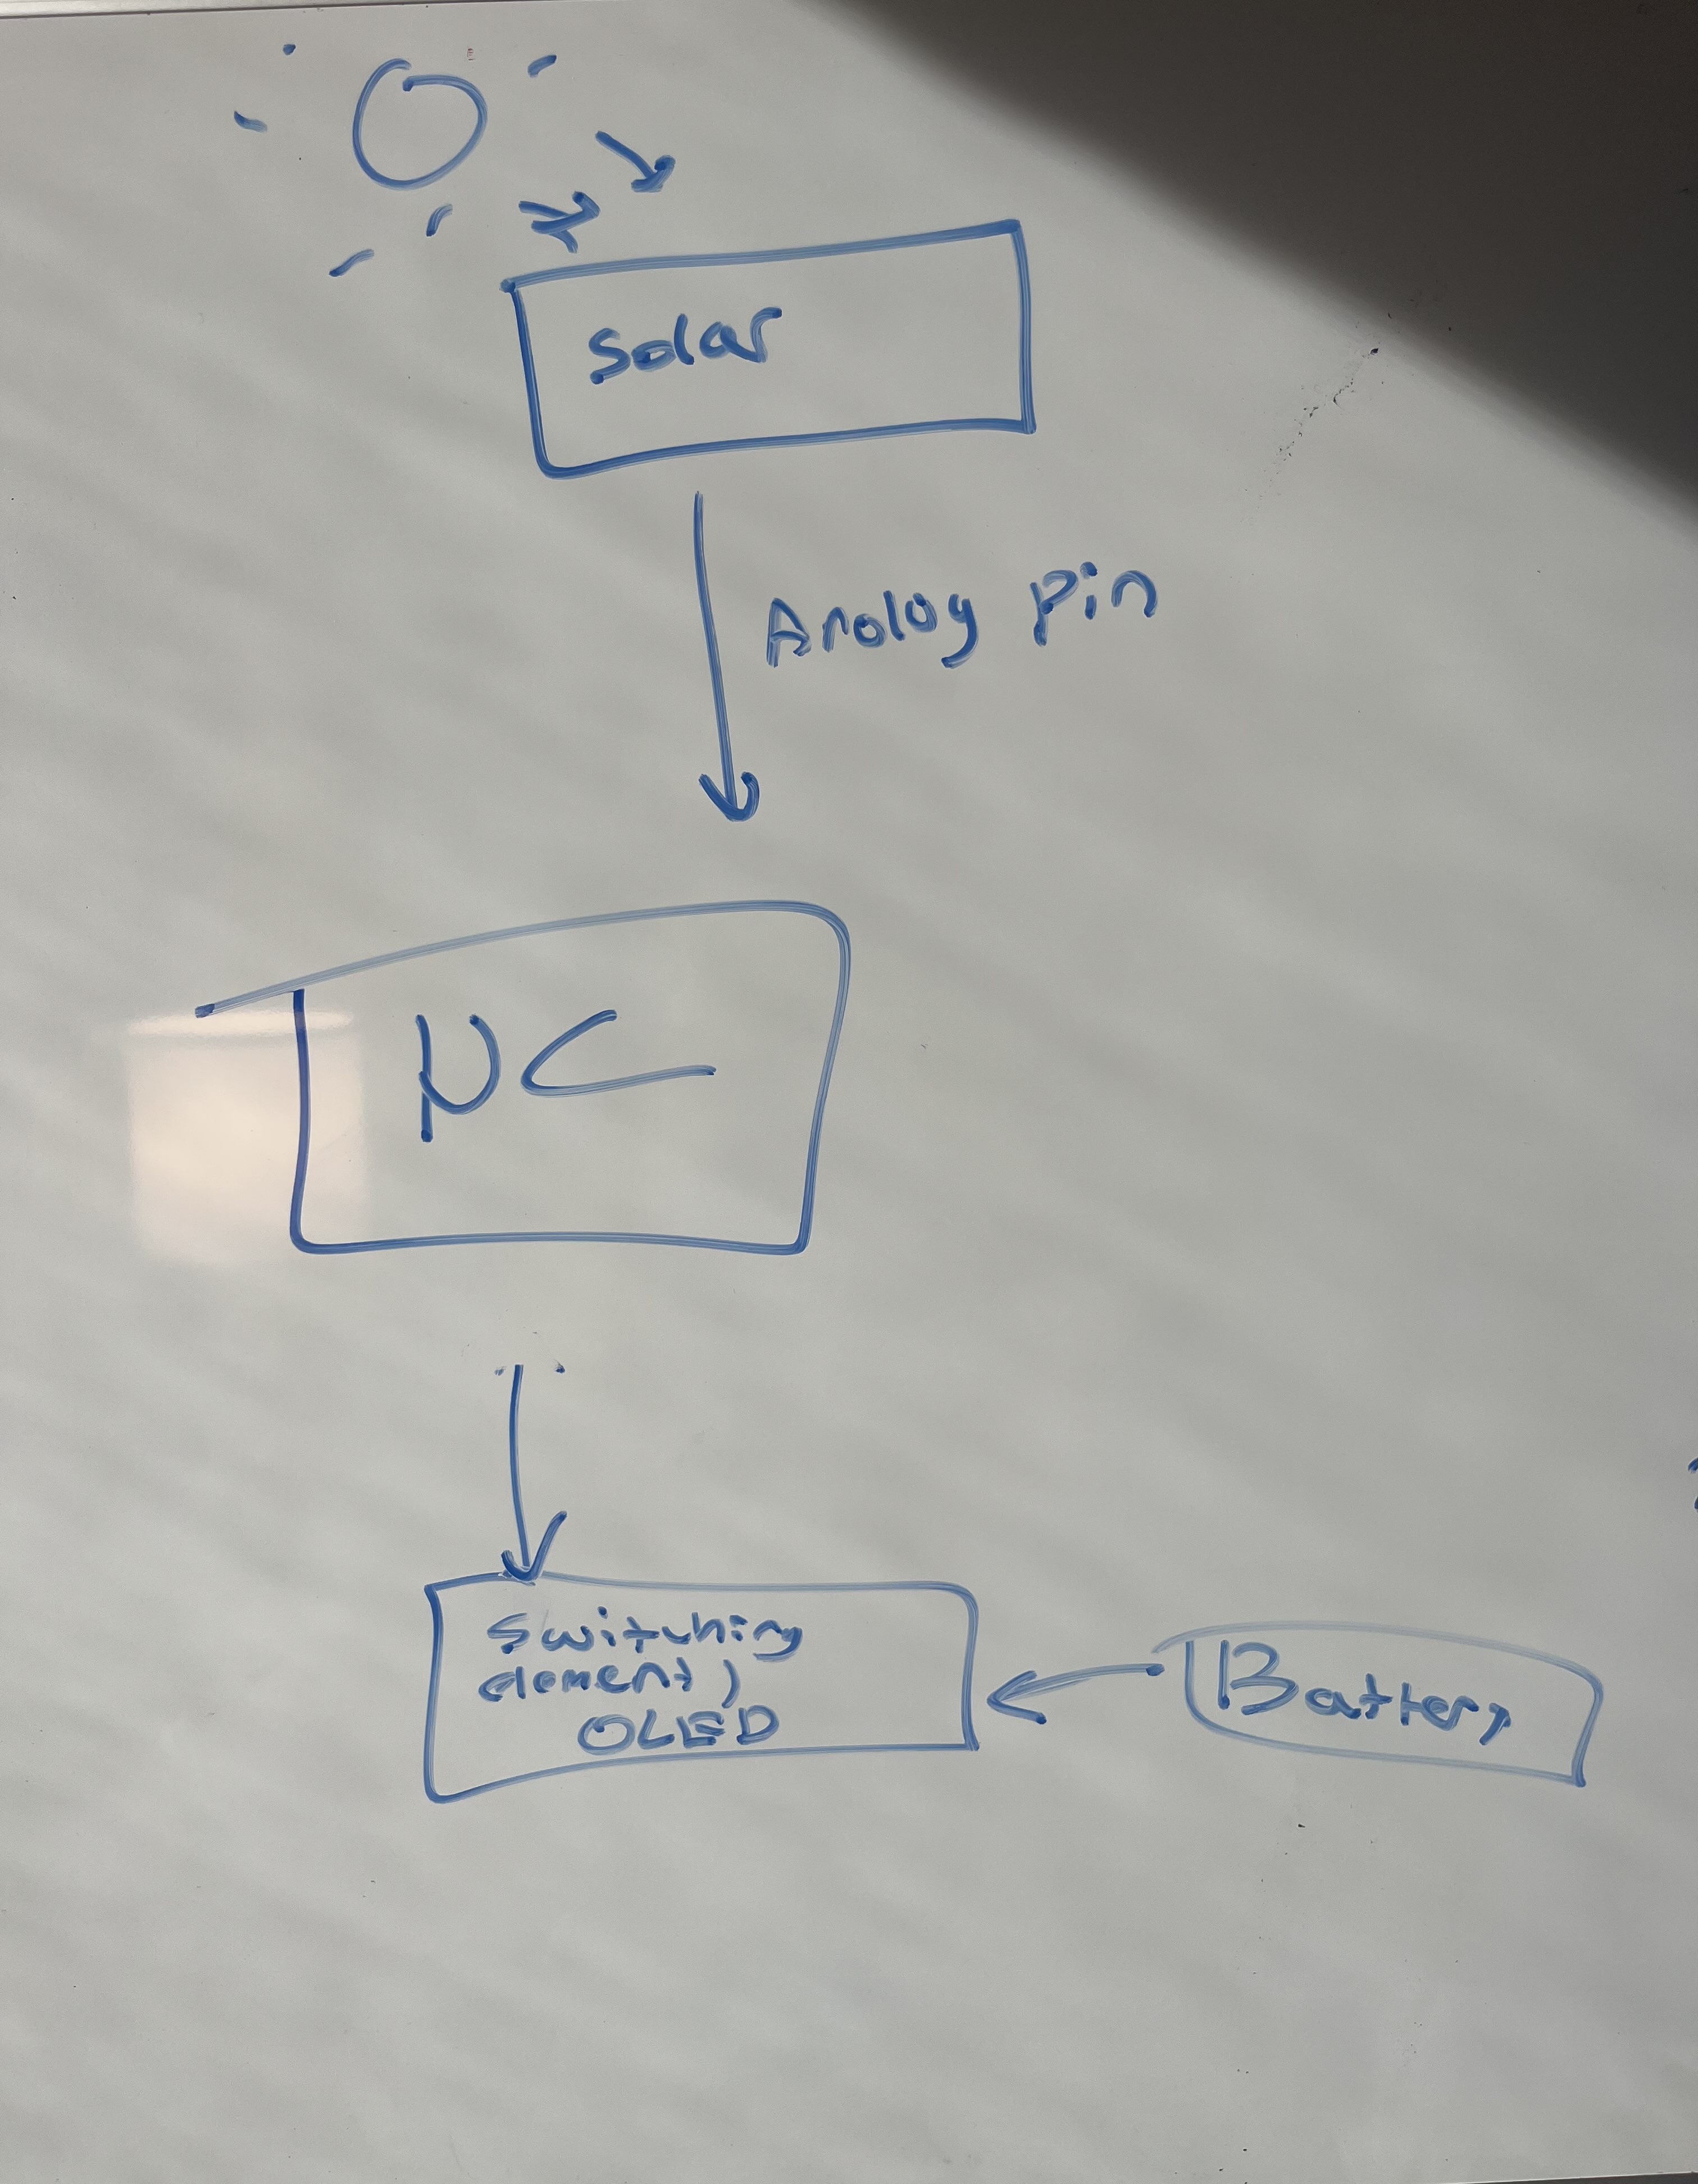 Solar
Analog Pin
μC
Switching
element,
OLED
Battery